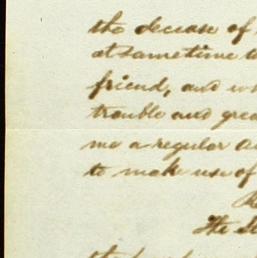 the decease of
at sametime
friend, and
trouble and
me a regular
to make use of
The